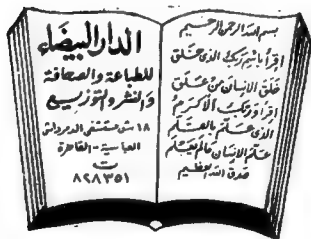 بسم الله الرحمن الرحيم
اقرأ باسم ربك الذى خلق
خلق الإنسان من علق
اقرأ وربك الأكرم
الذى علم بالقلم
علم الإنسان مالم يعلم
صدق الله العظيم
الدار البيضاء
للطباعة والصحافة
والنشر والتوزيع
١٨ ش مستشفى الدمرداش
العباسية - القاهرة
ت
٨٢٨٣٥١